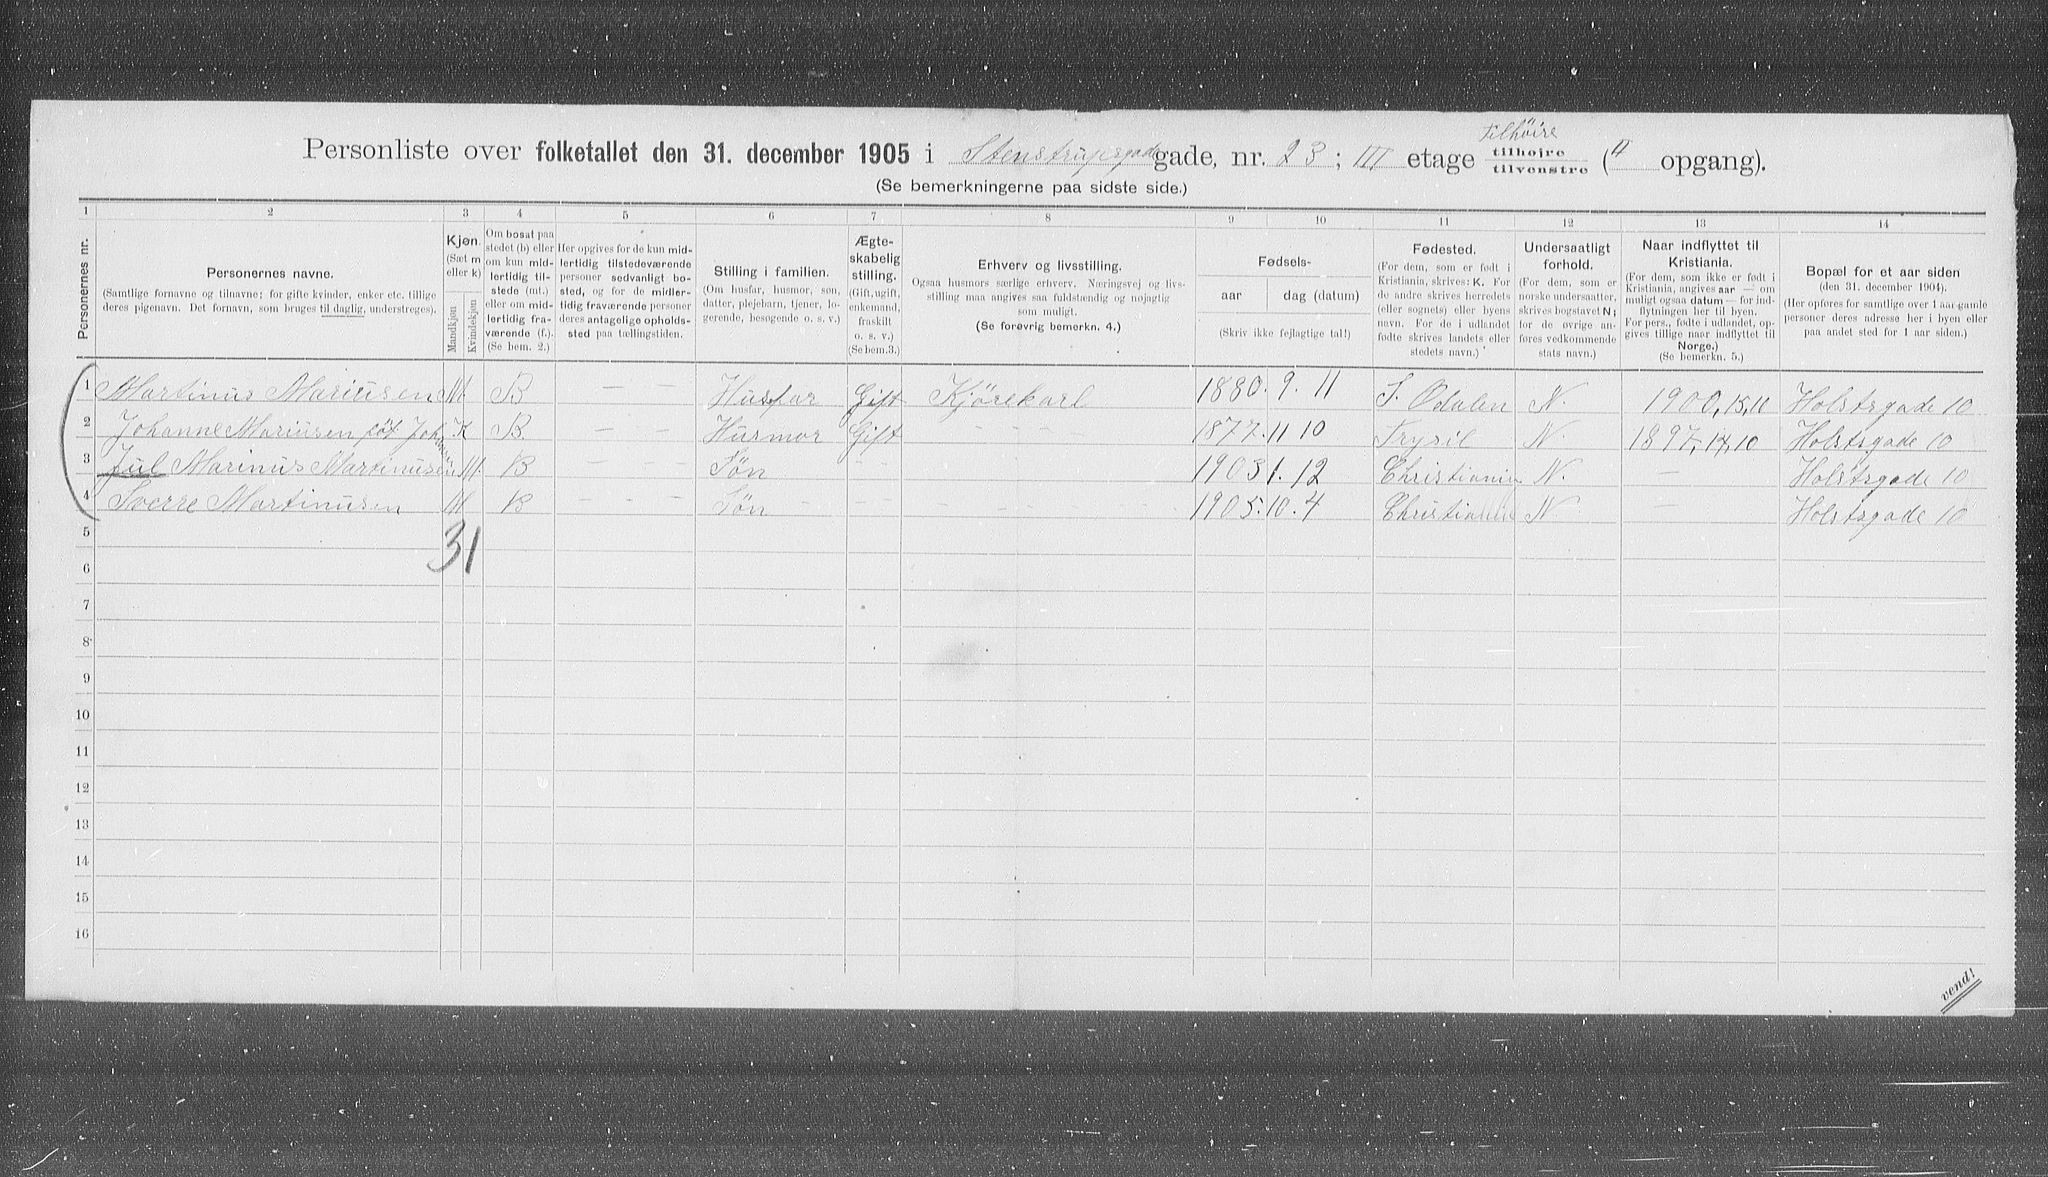 Tilhöire
Personliste over folketallet den 31. december 1905 i Stenstrupsgade gade, nr. 23; III etage tilhøjre tilvenstre (II opgang).
(Se bemerkningerne paa sidste side.)
1 2 3 4 5 6 7 8 9 10 11 12 13 14
Personernes nr.
Personernes navne.
(Samtlige fornavne og tilnavne; for gifte kvinder, enker etc. tillige deres pigenavn. Det fornavn, som bruges til daglig, understreges).
Kjøn.
(Sæt m eller k)
Mandkjøn
Kvindekjøn
Om bosat paa stedet (b) eller om kun midlertidig tilstede (mt.) eller om midlertidig fraværende (f.). (Se bem. 2.)
Her opgives for de kun midlertidig tilstedeværende personer sedvanligt bosted, og for de midlertidig fraværende personer deres antagelige opholdssted paa tællingstiden.
Stilling i familien.
(Om husfar, husmor, søn, datter, plejebarn, tjener, logerende, besøgende o. s. v.)
Ægteskabelig stilling.
(Gift, ugift, enkemand, fraskilt o. s. v.)
(Se bem. 3.)
Erhverv og livsstilling.
Ogsaa husmors særlige erhverv. Næringsvej og livsstilling maa angives saa fuldstændig og nøjagtig som muligt.
(Se forøvrig bemerkn. 4.)
Fødsels-
aar dag (datum)
(Skriv ikke fejlagtige tal!)
Fødested.
(For dem, som er født i Kristiania, skrives: K. For de andre skrives herredets (eller sognets) eller byens navn. For de i udlandet fødte skrives landets eller stedets navn.)
Undersaatligt forhold.
(For dem, som er norske undersaatter, skrives bogstavet N; for de øvrige anføres vedkommende stats navn.)
Naar indflyttet til Kristiania.
(For dem, som ikke er født i Kristiania, angives aar — om muligt ogsaa datum — for indflytningen her til byen. For pers., fødte i udlandet, opgives tillige naar indflyttet til Norge.)
(Se bemerkn. 5.)
Bopæl for et aar siden
(den 31. december 1904).
(Her opføres for samtlige over 1 aar gamle personer deres adresse her i byen eller paa andet sted for 1 aar siden.)
1 Martinus Mariusen M. B — — Husfar Gift Kjørekarl 1880. 9. 11 S. Odalen N. 1900, 15, 10 Holstsgade 10
2 Johanne Mariusen föt Johansen K B — — Husmor Gift - - - - 1877. 11 10 Trysil N. 1897, 14, 10 Holstsgade 10
3 Jul Marinus Martinusen M. B — — — Søn — — 1903 1. 12 Christiania N. — Holstsgade 10
4 Sverre Martinusen M B — — — Søn — — — 1905. 10. 4 Christiania N — Holstsgade 10
31
5
6
7
8
9
10
11
12
13
14
15
16
vend!